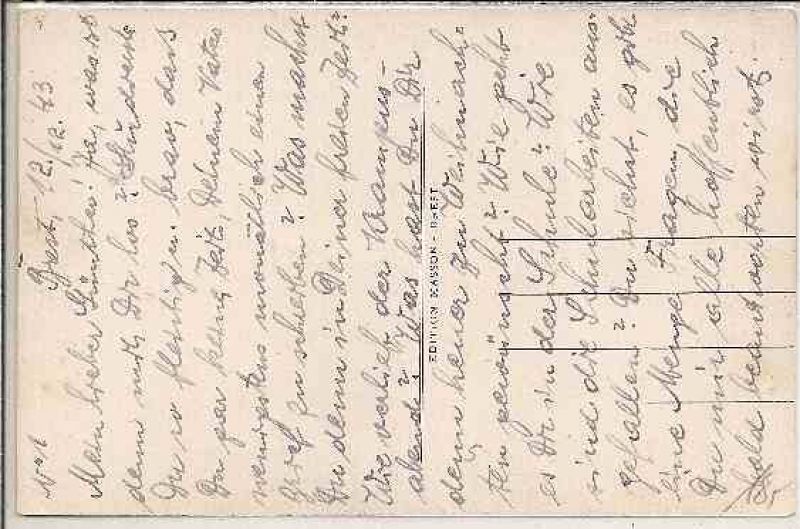 Brest, 12./12. 43
Mein lieber Günther! Ja, was ist
denn mit Dir los? Studierst
Du so fleißig u. brav, dass
Du gar keine Zeit, Deinem Vater
wenigstens monatlich einen
Brief zu schreiben? Was machst
Du denn in Deiner freien Zeit?
Wie verlief der Krampus-
abend? Was hast Du Dir
EDITION GASSON - BREST
denn heuer zu Weihnach-
ten gewünscht? Wie geht
es Dir in der Schule? Wie
sind die Schularbeiten aus-
gefallen? Du siehst, es gibt
eine Menge Fragen, die
Du mir alle hoffentlich
bald beantworten wirst.